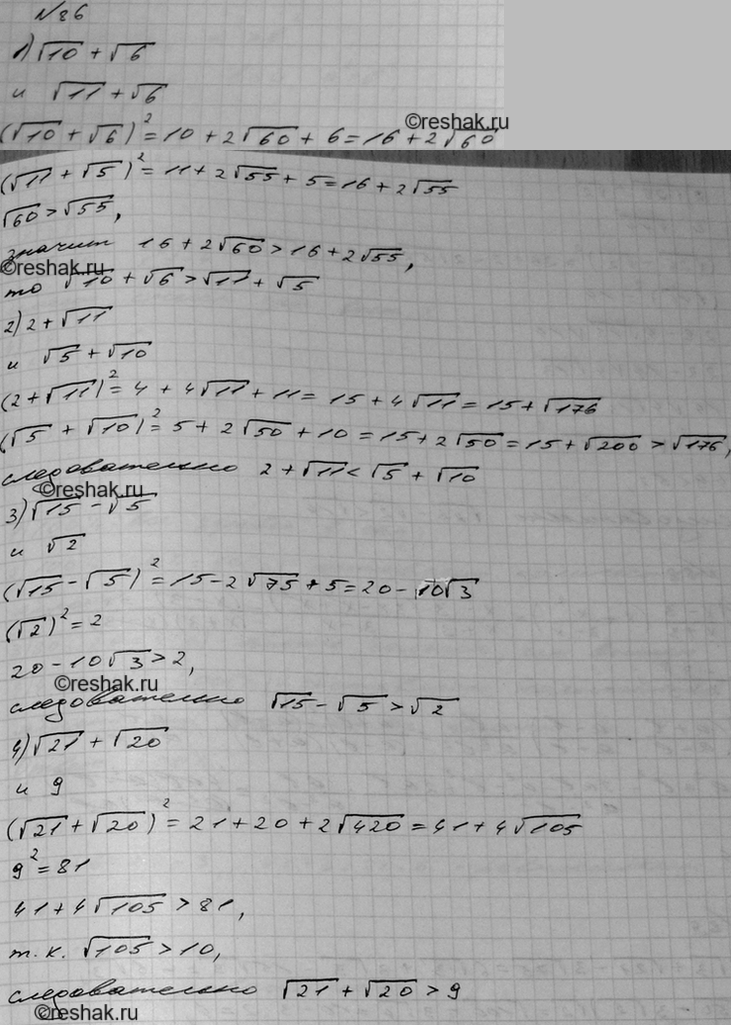 №86
1) √10 + √6
и √11 + √6
(√10 + √6)² = 10 + 2√60 + 6 = 16 + 2√60
©reshak.ru
(√11 + √5)² = 11 + 2√55 + 5 = 16 + 2√55
√60 > √55,
значит 16 + 2√60 > 16 + 2√55,
©reshak.ru
то √10 + √6 > √11 + √5
2) 2 + √11
и √5 + √10
(2 + √11)² = 4 + 4√11 + 11 = 15 + 4√11 = 15 + √176
(√5 + √10)² = 5 + 2√50 + 10 = 15 + 2√50 = 15 + √200 > √176,
следовательно 2 + √11 < √5 + √10
©reshak.ru
3) √15 - √5
и √2
(√15 - √5)² = 15 - 2√75 + 5 = 20 - 10√3
(√2)² = 2
20 - 10√3 > 2,
©reshak.ru
следовательно √15 - √5 > √2
4) √21 + √20
и 9
(√21 + √20)² = 21 + 20 + 2√420 = 41 + 4√105
9² = 81
41 + 4√105 > 81,
т.к. √105 > 10,
следовательно √21 + √20 > 9
©reshak.ru